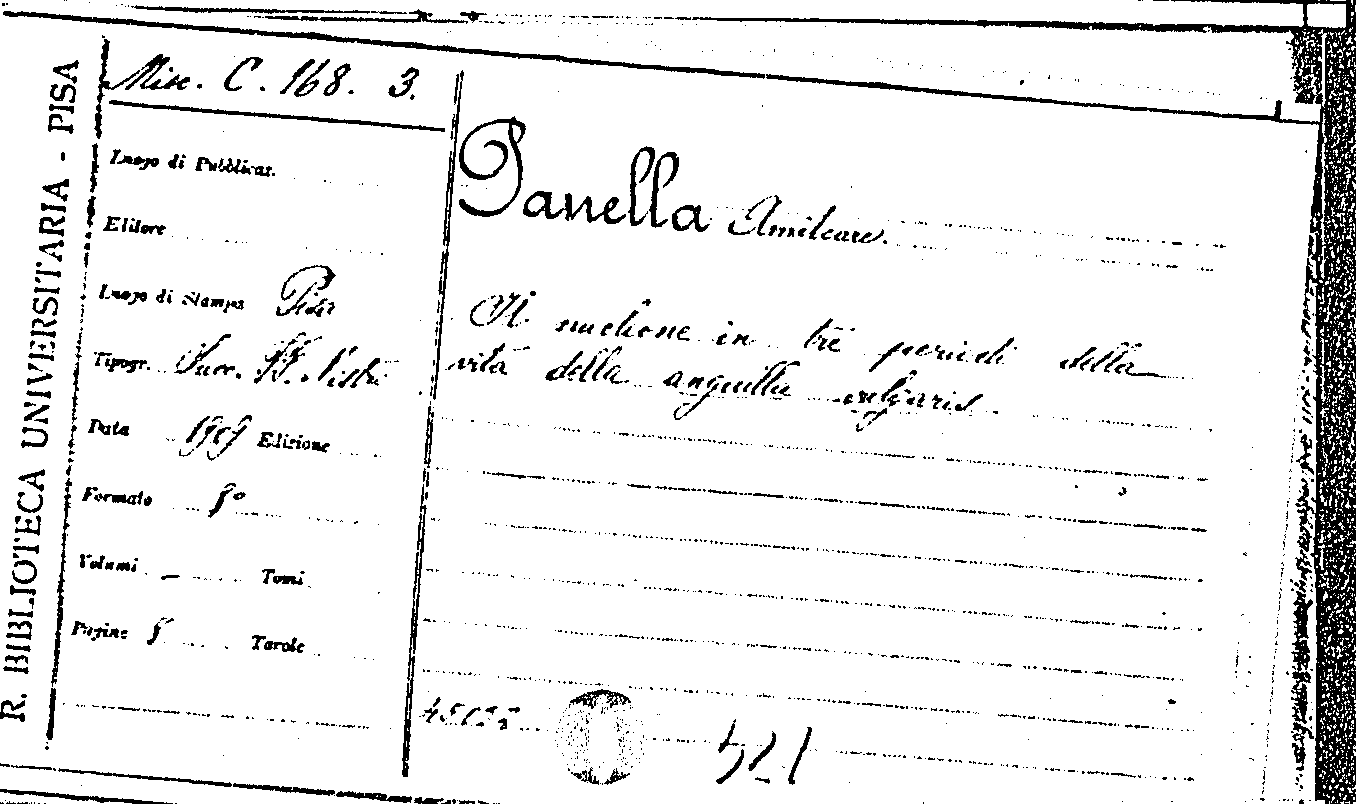 R. BIBLIOTECA UNIVERSITARIA - PISA
Misc. C. 168. 3.
Luogo di Pubblicaz.
Editore
Luogo di Stampa Pisa
Tipogr. Succ. FF. Nistri
Data Edizione
Formato 8°
Volumi - Tomi
Pagine 8 Tavole
Panella Amilcare.
Il nucleone in tre periodi della
vita della anguilla vulgaris.
521